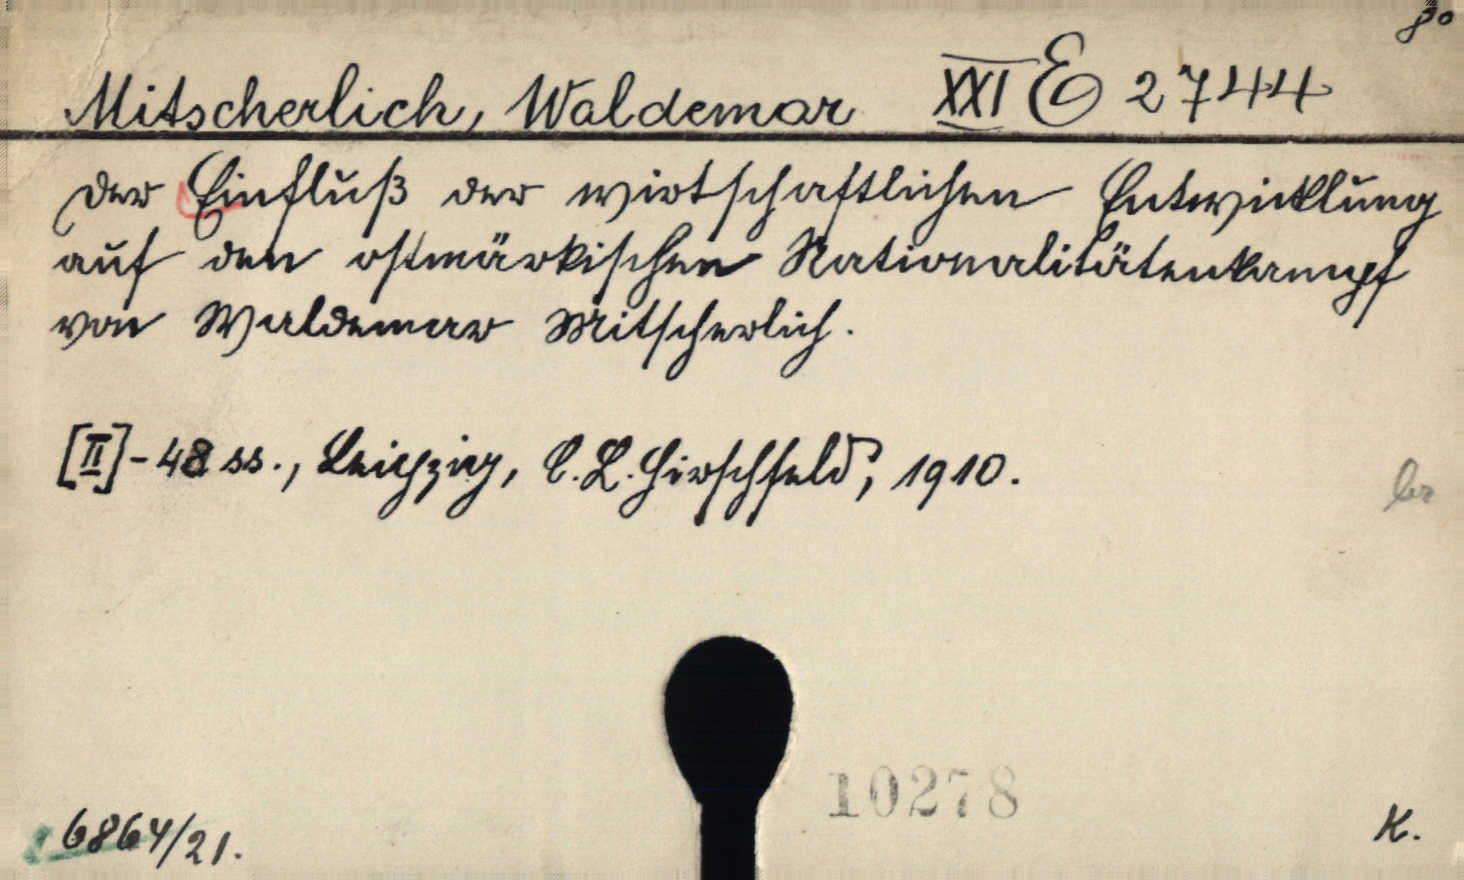 8o
Mitscherlich, Waldemar XXI E 2744
Der Einfluß der wirtschaftlichen Entwicklung
auf den ostmärkischen Nationalitätenkampf
von Waldemar Mitscherlich.
[II]-48 ss., Leipzig, C. L. Hirschfeld, 1910.
10278
6864/21.
K.